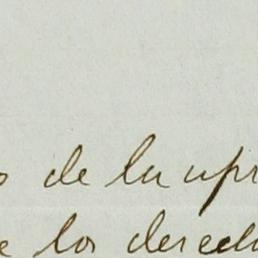 de la apr
los derech